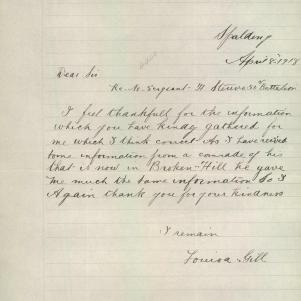 Spalding
April 8. 1918
Dear Sir
Re. M. Sergeant - H Battalion
I feel thankfull for the information
which you have kindly gathered for
me which I think correct As I have recived
some information from a comrade of his
that is now in Broken-Hill he gave
me much the same information So I
Again thank you for your kindness
I remain
Louisa Gill